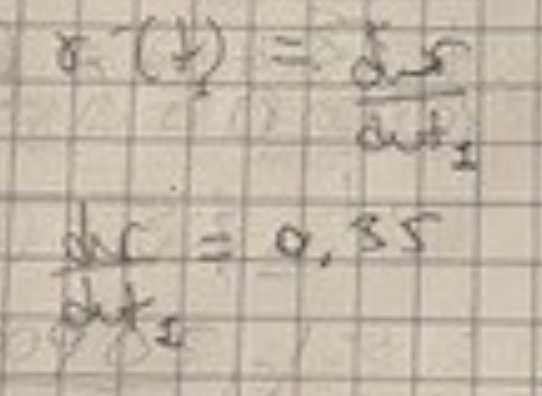 r'(t₁) = dr/dt₁
dr/dt₁ = 0,35